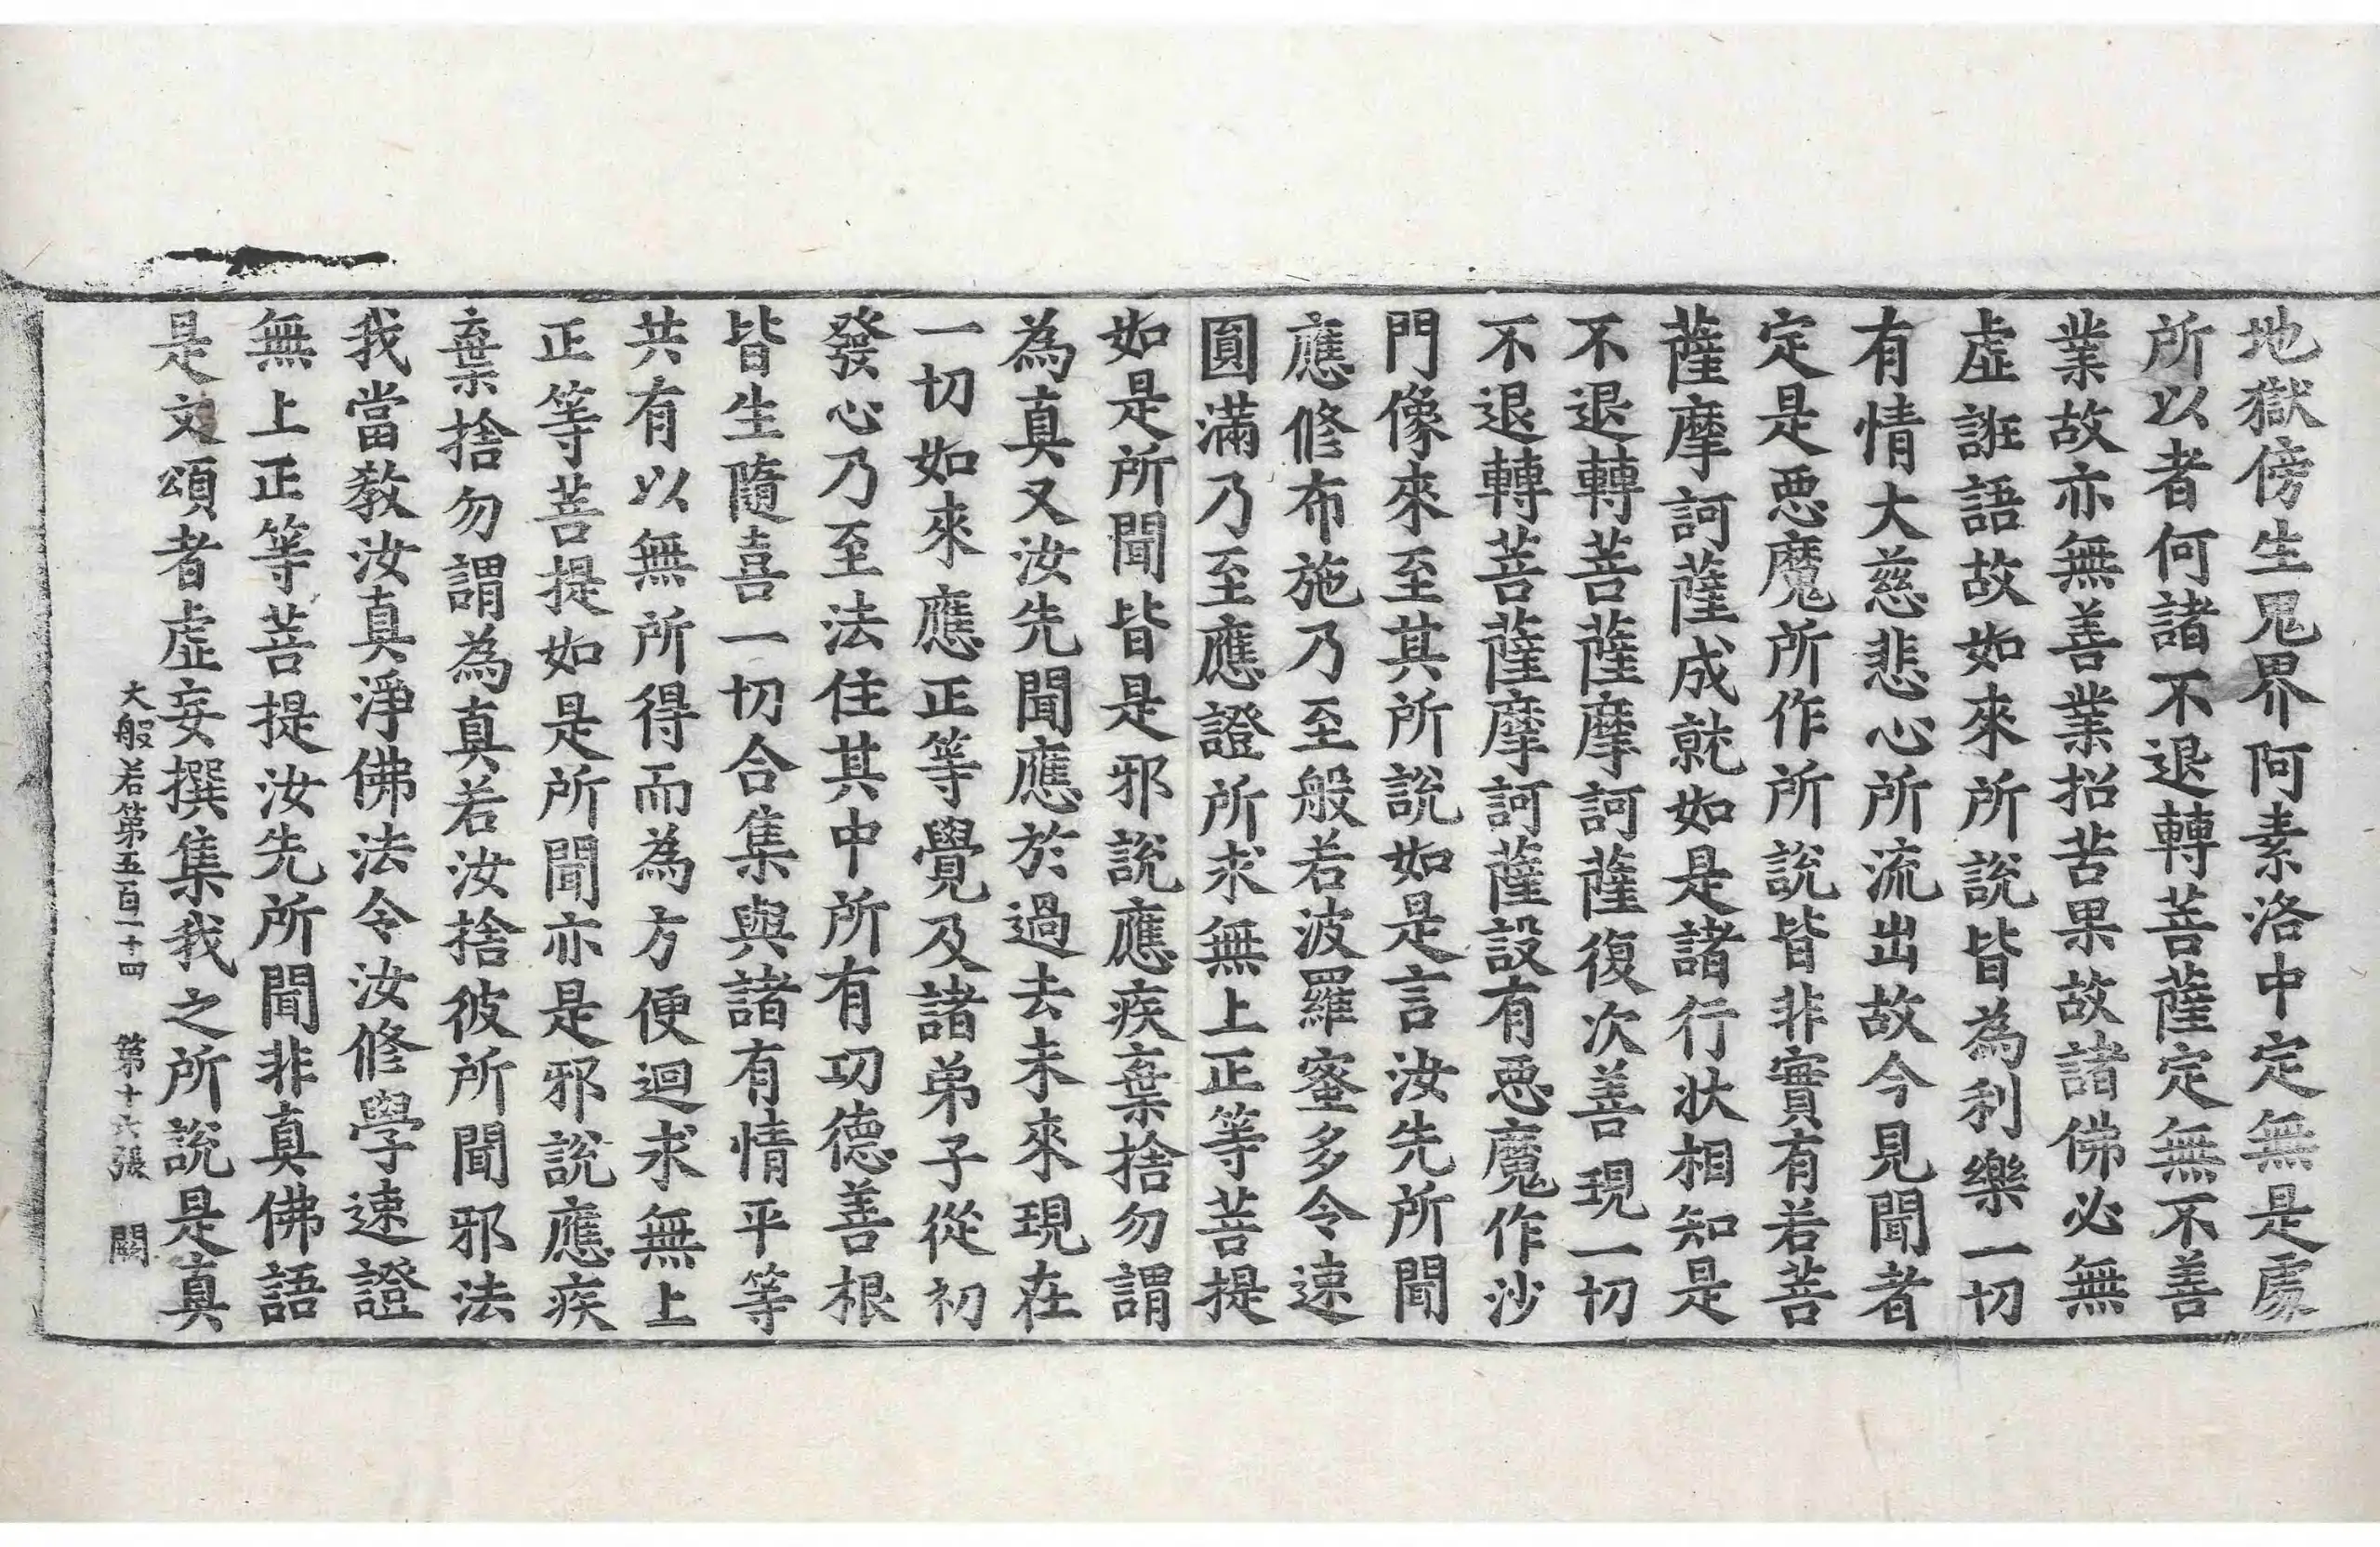 地獄傍生鬼界阿素洛中定無是處
所以者何諸不退轉菩薩定無不善
業故亦無善業招苦果故諸佛必無
虛誑語故如來所說皆為利樂一切
有情大慈悲心所流出故今見聞者
定是惡魔所作所說皆非實有若菩
薩摩訶薩成就如是諸行狀相知是
不退轉菩薩摩訶薩復次善現一切
不退轉菩薩摩訶薩設有惡魔作沙
門像來至其所說如是言汝先所聞
應修布施乃至般若波羅蜜多令速
圓滿乃至應證所求無上正等菩提
如是所聞皆是邪說應疾棄捨勿謂
為真又汝先聞應於過去未來現在
一切如來應正等覺及諸弟子從初
發心乃至法住其中所有功德善根
皆生隨喜一切合集與諸有情平等
共有以無所得而為方便迴求無上
正等菩提如是所聞亦是邪說應疾
棄捨勿謂為真若汝捨彼所聞邪法
我當教汝真淨佛法令汝修學速證
無上正等菩提汝先所聞非真佛語
是文頌者虛妄撰集我之所說是真
大般若第五百一十四 第十六張 闕